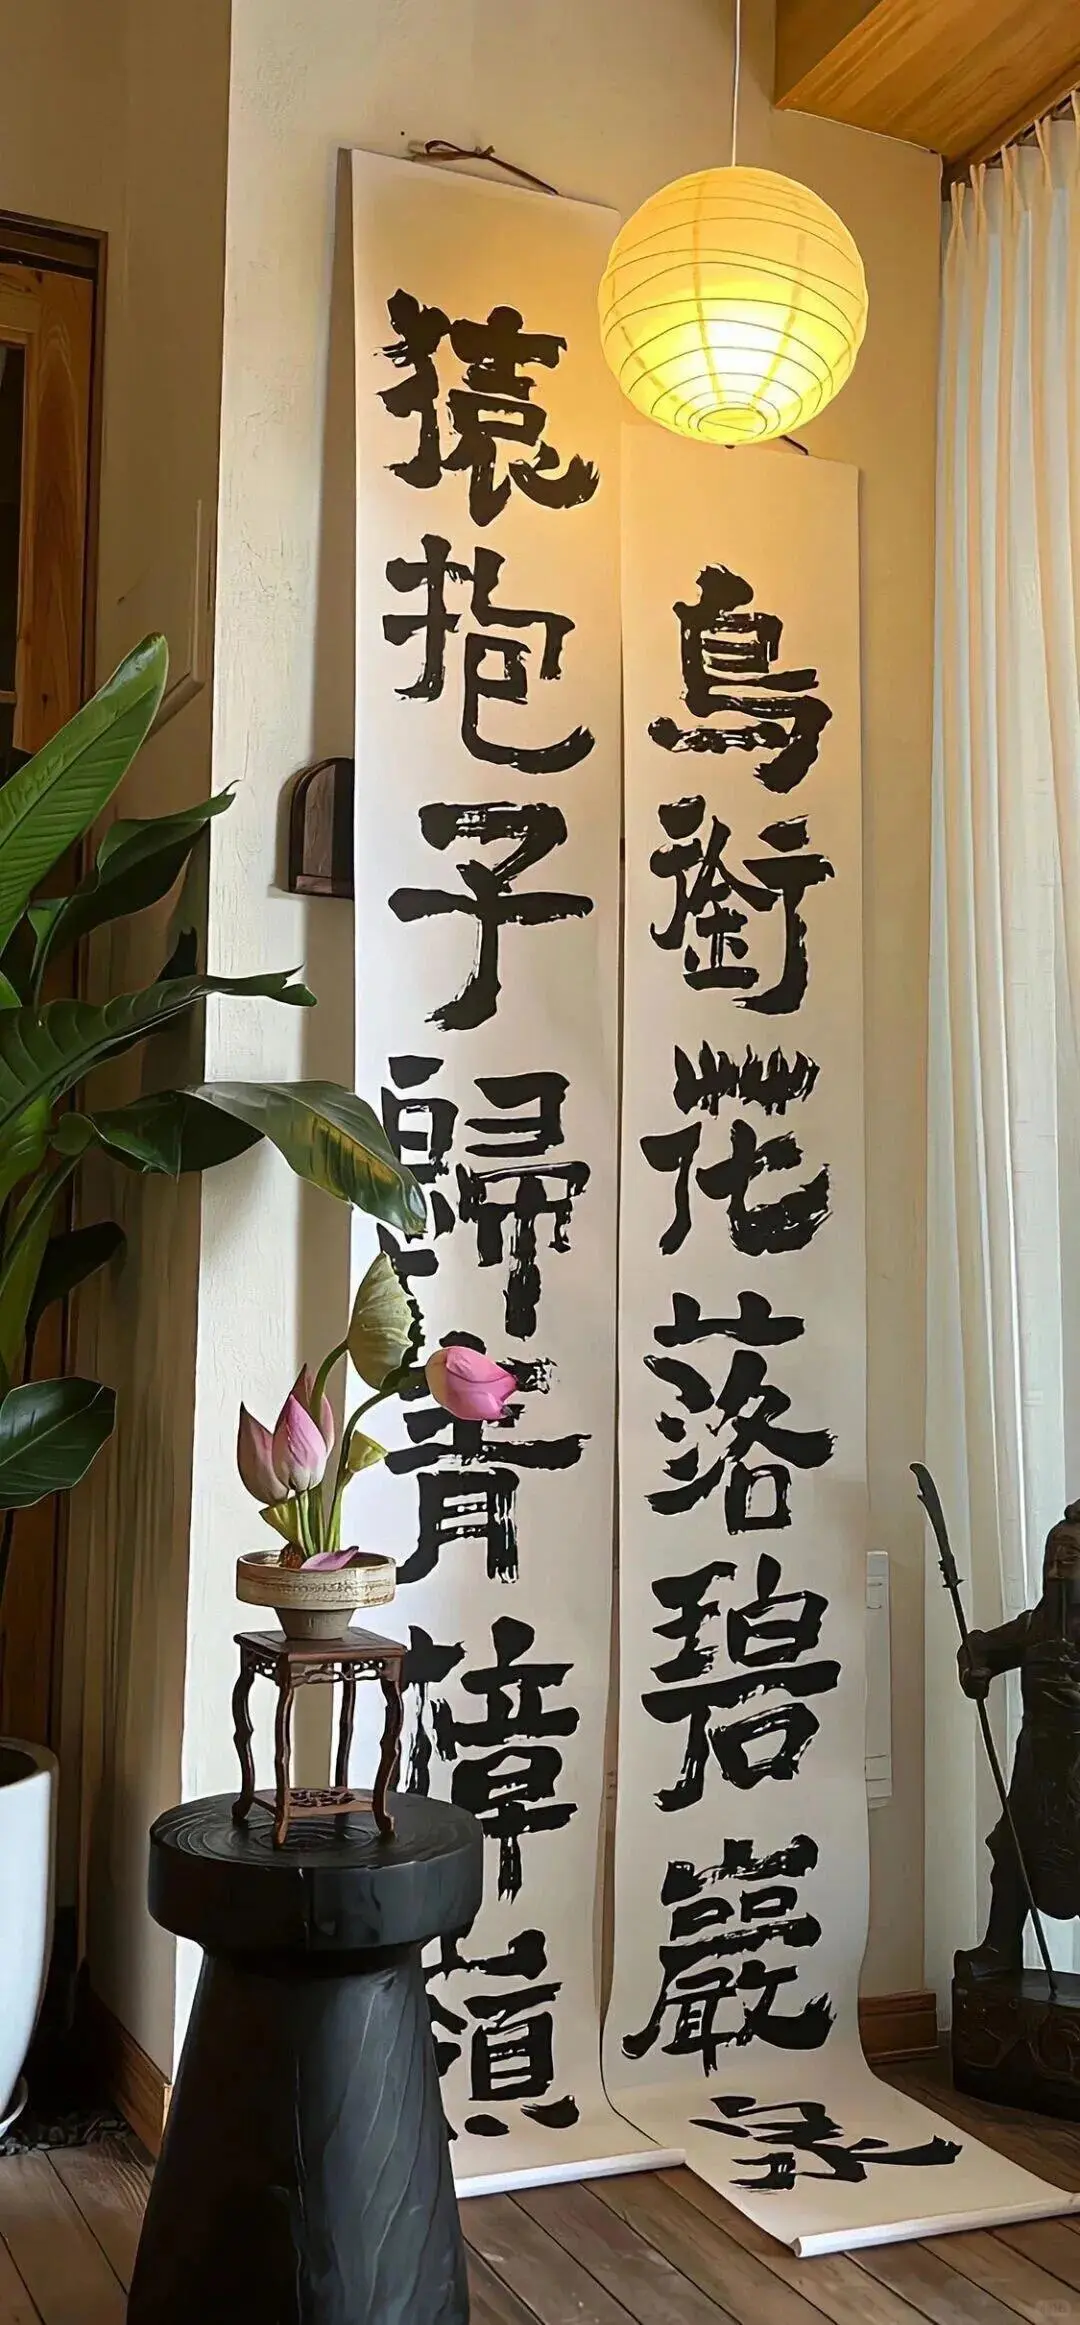 猿抱子歸青嶂嶺
鳥銜花落碧巖泉